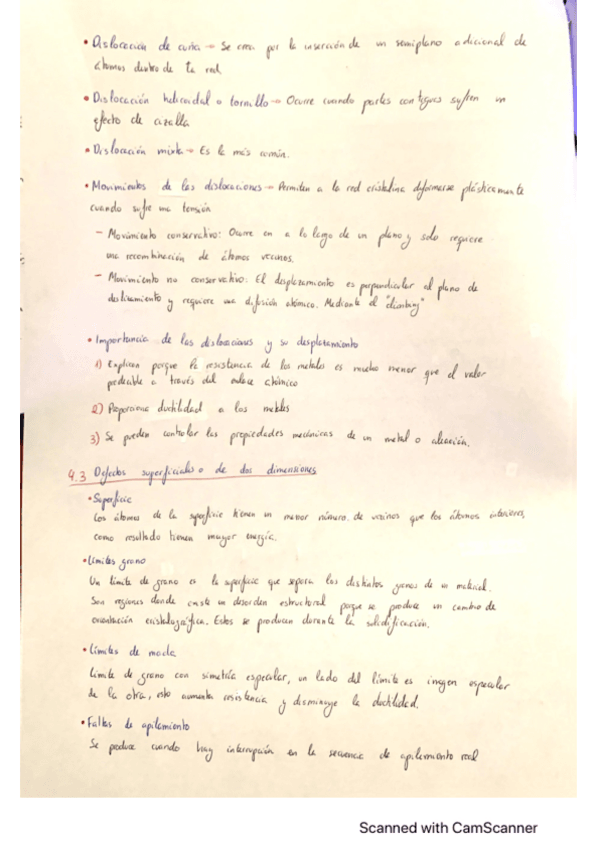 • Dislocación de cuña → Se crea por la inserción de un semiplano adicional de
átomos dentro de la red.
• Dislocación helicoidal o tornillo → Ocurre cuando partes contiguas sufren un
efecto de cizalla
• Dislocación mixta → Es la más común.
• Movimientos de las dislocaciones → Permiten a la red cristalina deformarse plásticamente
cuando sufre una tensión
- Movimiento conservativo: Ocurre en a lo largo de un plano y solo requiere
una recombinación de átomos vecinos.
- Movimiento no conservativo: El desplazamiento es perpendicular al plano de
deslizamiento y requiere una difusión atómica. Mediante el "climbing"
• Importancia de las dislocaciones y su desplazamiento
1) Explican porque la resistencia de los metales es mucho menor que el valor
predecible a través del enlace atómico
2) Proporciona ductilidad a los metales
3) Se pueden controlar las propiedades mecánicas de un metal o aleación.
4.3 Defectos superficiales o de dos dimensiones
• Superficie
Los átomos de la superficie tienen un menor número de vecinos que los átomos interiores,
como resultado tienen mayor energía.
• Límites grano
Un límite de grano es la superficie que separa los distintos granos de un material.
Son regiones donde existe un desorden estructural porque se produce un cambio de
orientación cristalográfica. Estos se producen durante la solidificación.
• Límites de macla
Límite de grano con simetría especular, un lado del límite es imagen especular
de la otra, esto aumenta resistencia y disminuye la ductilidad.
• Fallas de apilamiento
Se produce cuando hay interrupción en la secuencia de apilamiento real
Scanned with CamScanner